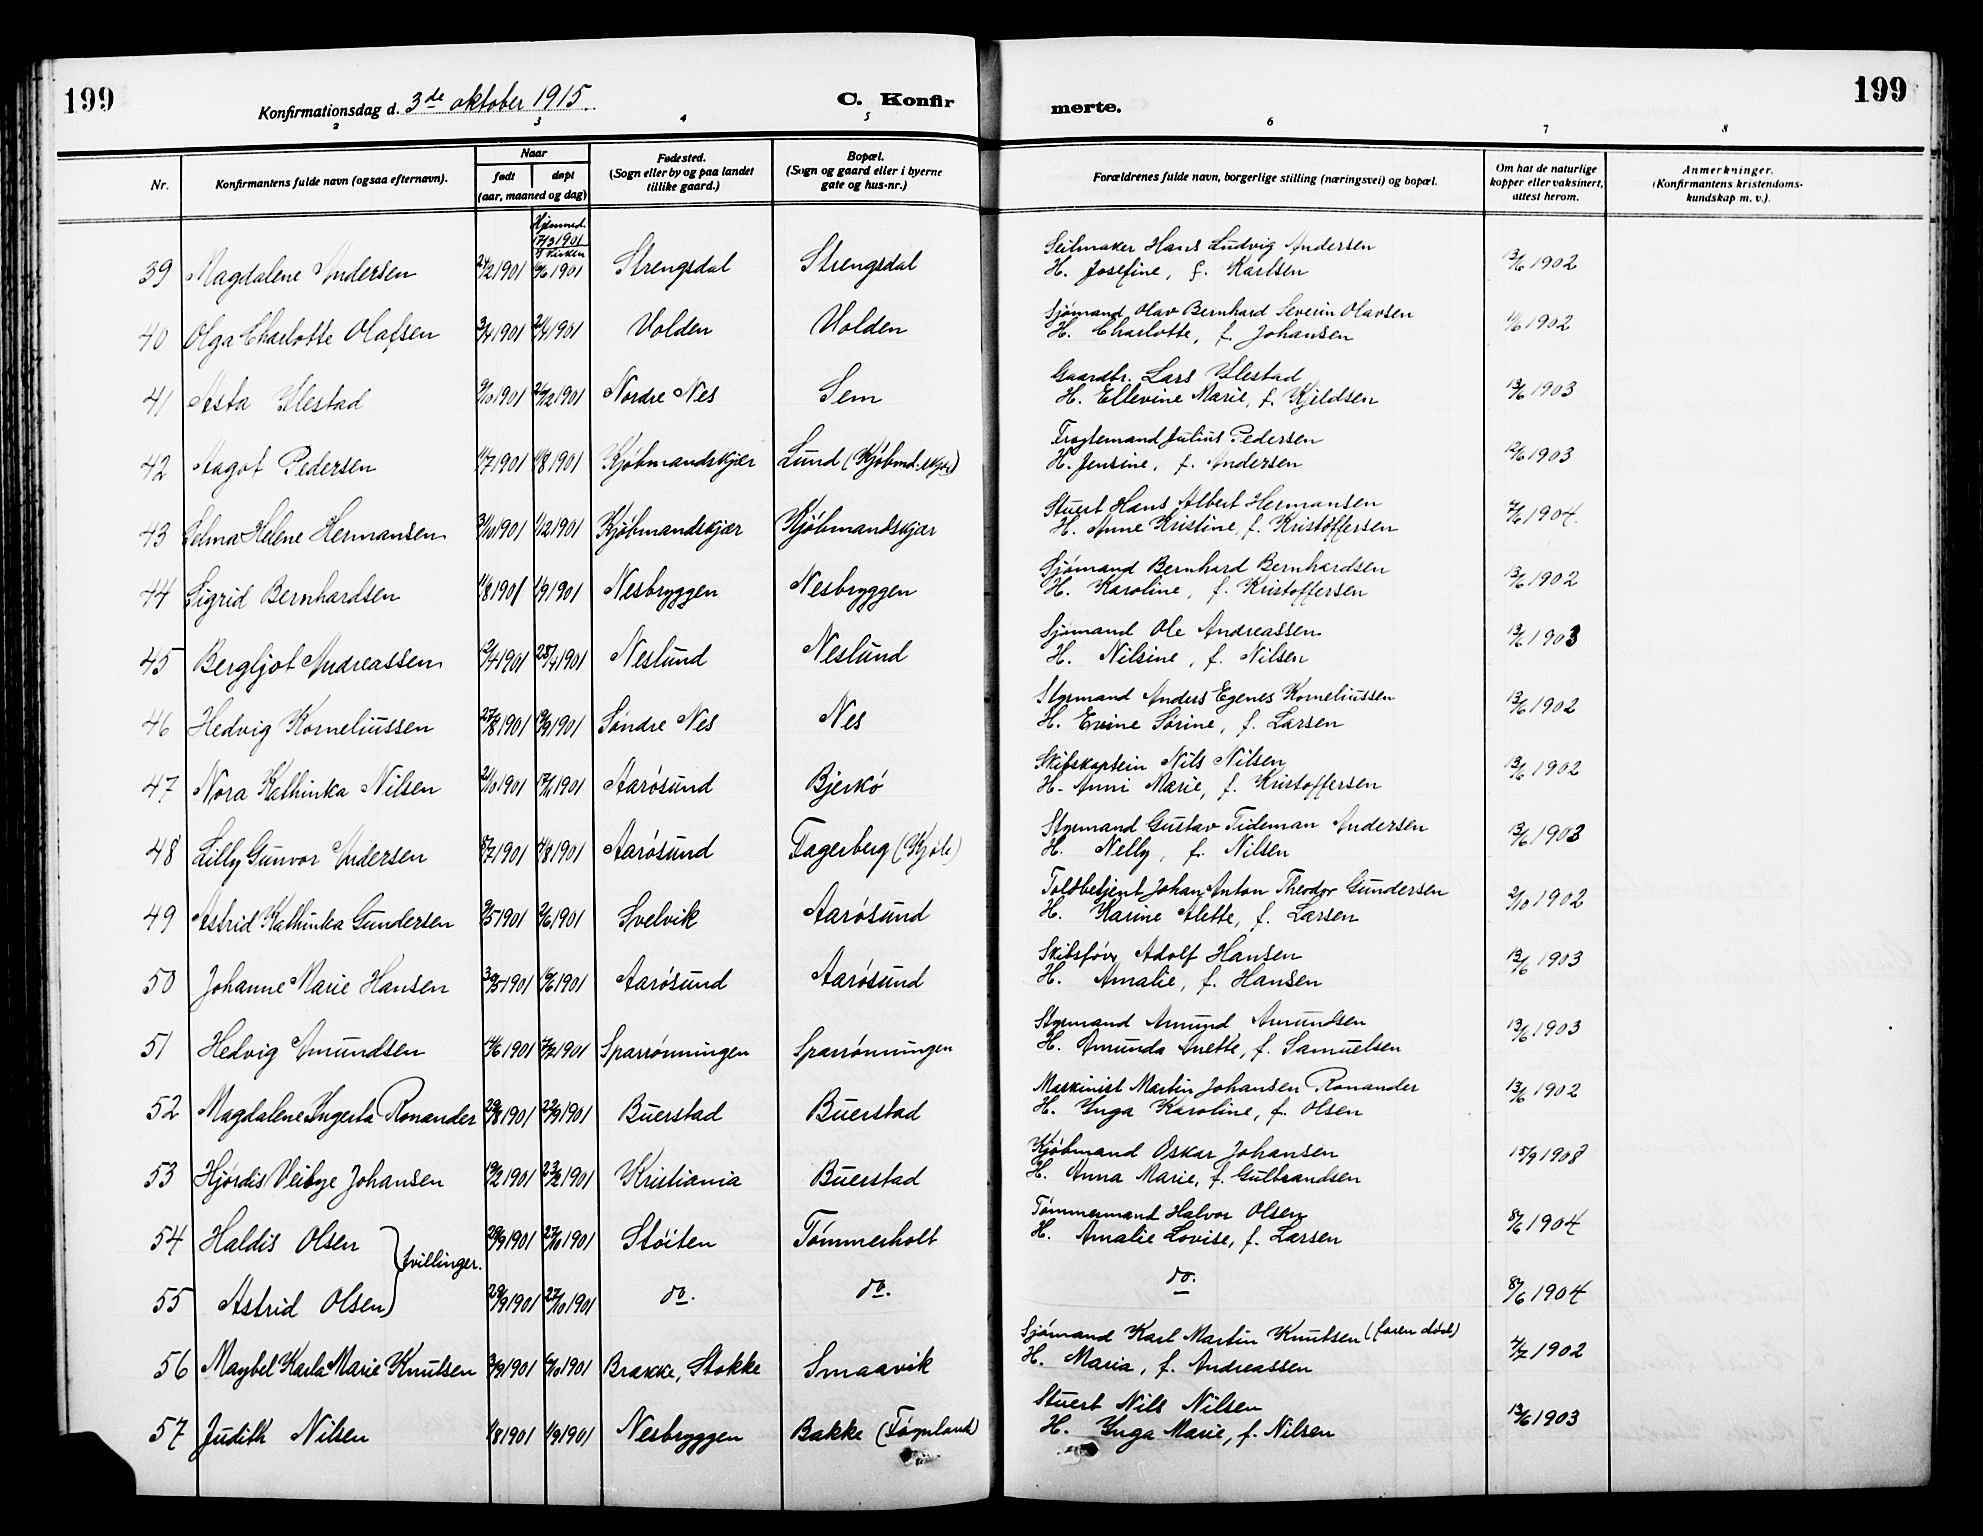 199
Konfirmationsdag d. 3de oktober 1915.
C. Konfir
merte.
199
2 3 4 5 6 7 8
Nr.
Konfirmantens fulde navn (ogsaa efternavn).
Naar
født
døpt
(aar, maaned og dag)
Fødested.
(Sogn eller by og paa landet
tillike gaard.)
Bopæl.
(Sogn og gaard eller i byerne
gate og hus-nr.)
Forældrenes fulde navn, borgerlige stilling (næringsvei) og bopæl.
Om hat de naturlige
kopper eller vaksinert,
attest herom.
Anmerkninger.
(Konfirmantens kristendoms-
kundskap m. v.).
Hjemmed.
17/3 1901
I Kirken
Seilmaker Hans Ludvig Andersen
39 Magdalene Andersen 24/2 1901 16/6 1901 Strengsdal Strengsdal H. Josefine, f. Karlsen 13/6 1902
Sjømand Olav Bernhard Severin Olavsen
40 Olga Charlotte Olafsen 3/4 1901 21/4 1901 Holden Holden H. Charlotte, f. Johansen 11/6 1902
Gaardbr. Lars Ilestad
41 Asta Ilestad 9/10 1901 26/12 1901 Nordre Nes Sem H. Ellevine Marie, f. Kjeldsen 13/6 1903
Julius Pedersen
42 Aagot Pedersen 11/7 1901 11/8 1901 Kjøbmandskjær Lund (Kjøbmd.skjær) H. Jensine, f. Andersen 12/6 1903
Stuert Hans Albert Hermansen
43 Selma Helene Hermansen 31/10 1901 1/12 1901 Kjøbmandskjær Kjøbmandskjær H. Anne Kristine, f. Kristoffersen 7/6 1904.
Sjømand Bernhard Bernhardsen
44 Sigrid Bernhardsen 11/8 1901 1/9 1901 Nesbryggen Nesbryggen H. Karoline, f. Kristoffersen 13/6 1902
Sjømand Ole Andreassen
45 Bergljot Andreassen 12/4 1901 28/4 1901 Neslund Neslund H. Nilsine, f. Nilsen 13/6 1903
Styrmand Anders Egenes Korneliussen
46 Hedvig Korneliussen 27/8 1901 19/9 1901 Søndre Nes Nes H. Evine Sørine, f. Larsen 13/6 1902
Skibskaptein Nils Nilsen
47 Nora Kathinka Nilsen 21/10 1901 17/11 1901 Aarøsund Bjerkø H. Anni Marie, f. Kristoffersen 13/6 1902
Styrmand Gustav Tideman Andersen
48 Lilly Gunvor Andersen 8/7 1901 4/8 1901 Aarøsund Fagerberg H. Nelly, f. Nilsen 13/6 1903
Toldbetjent Johan Anton Theodor Gundersen
49 Astrid Kathinka Gundersen 9/5 1901 9/6 1901 Svelvik Aarøsund H. Karine Alette, f. Larsen 2/10 1902
Skibsfører Adolf Hansen
50 Johanne Marie Hansen 30/5 1901 16/6 1901 Aarøsund Aarøsund H. Amalie, f. Hansen 13/6 1903
Styrmand Amund Amundsen
51 Hedvig Amundsen 14/6 1901 7/7 1901 Sparrønningen Sparrønningen H. Amunda Anette, f. Samuelsen 13/6 1903
Maskinist Martin Johansen Ronander
52 Magdalene Ingerta Ronander 29/8 1901 22/9 1901 Buerstad Buerstad H. Inga Karoline, f. Olsen 13/6 1902
Kjøbmand Oskar Johansen
53 Hjørdis Veibye Johansen 19/2 1901 23/2 1901 Kristiania Buerstad H. Anna Marie, f. Gulbrandsen 15/9 1908
Tømmermand Halvor Olsen
54 Haldis Olsen 29/9 1901 27/10 1901 Støiten Tømmerholt H. Amalie Lovise, f. Larsen 8/6 1904
tvillinger.
55 Astrid Olsen 29/9 1901 27/10 1901 do. do. do. 8/6 1904
Sjømand Karl Martin Knutsen (faren død)
56 Maybel Karla Marie Knutsen 3/9 1901 6/10 1901 Brække, Stokke Smaavik H. Maria, f. Andreassen 4/7 1902
Stuert Nils Nilsen
57 Judith Nilsen 1/8 1901 1/9 1901 Nesbryggen Bakke (Føynland) H. Inga Marie, f. Nilsen 13/6 1903